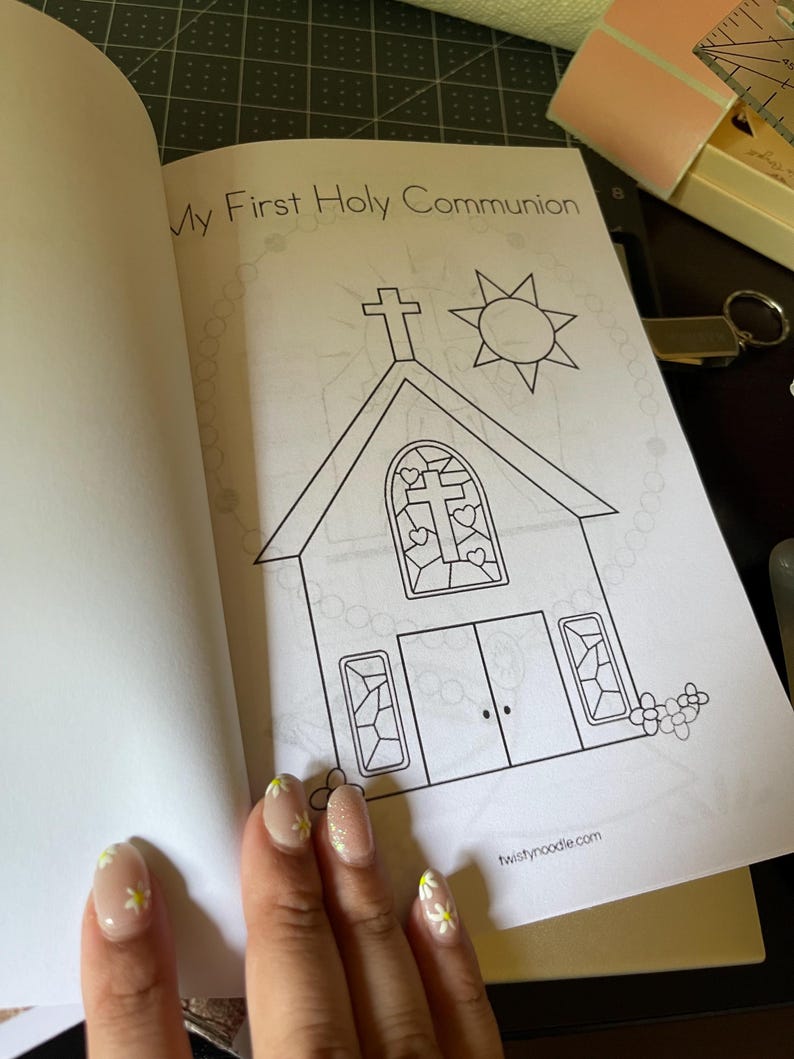 My First Holy Communion
8
45
twistynoodle.com